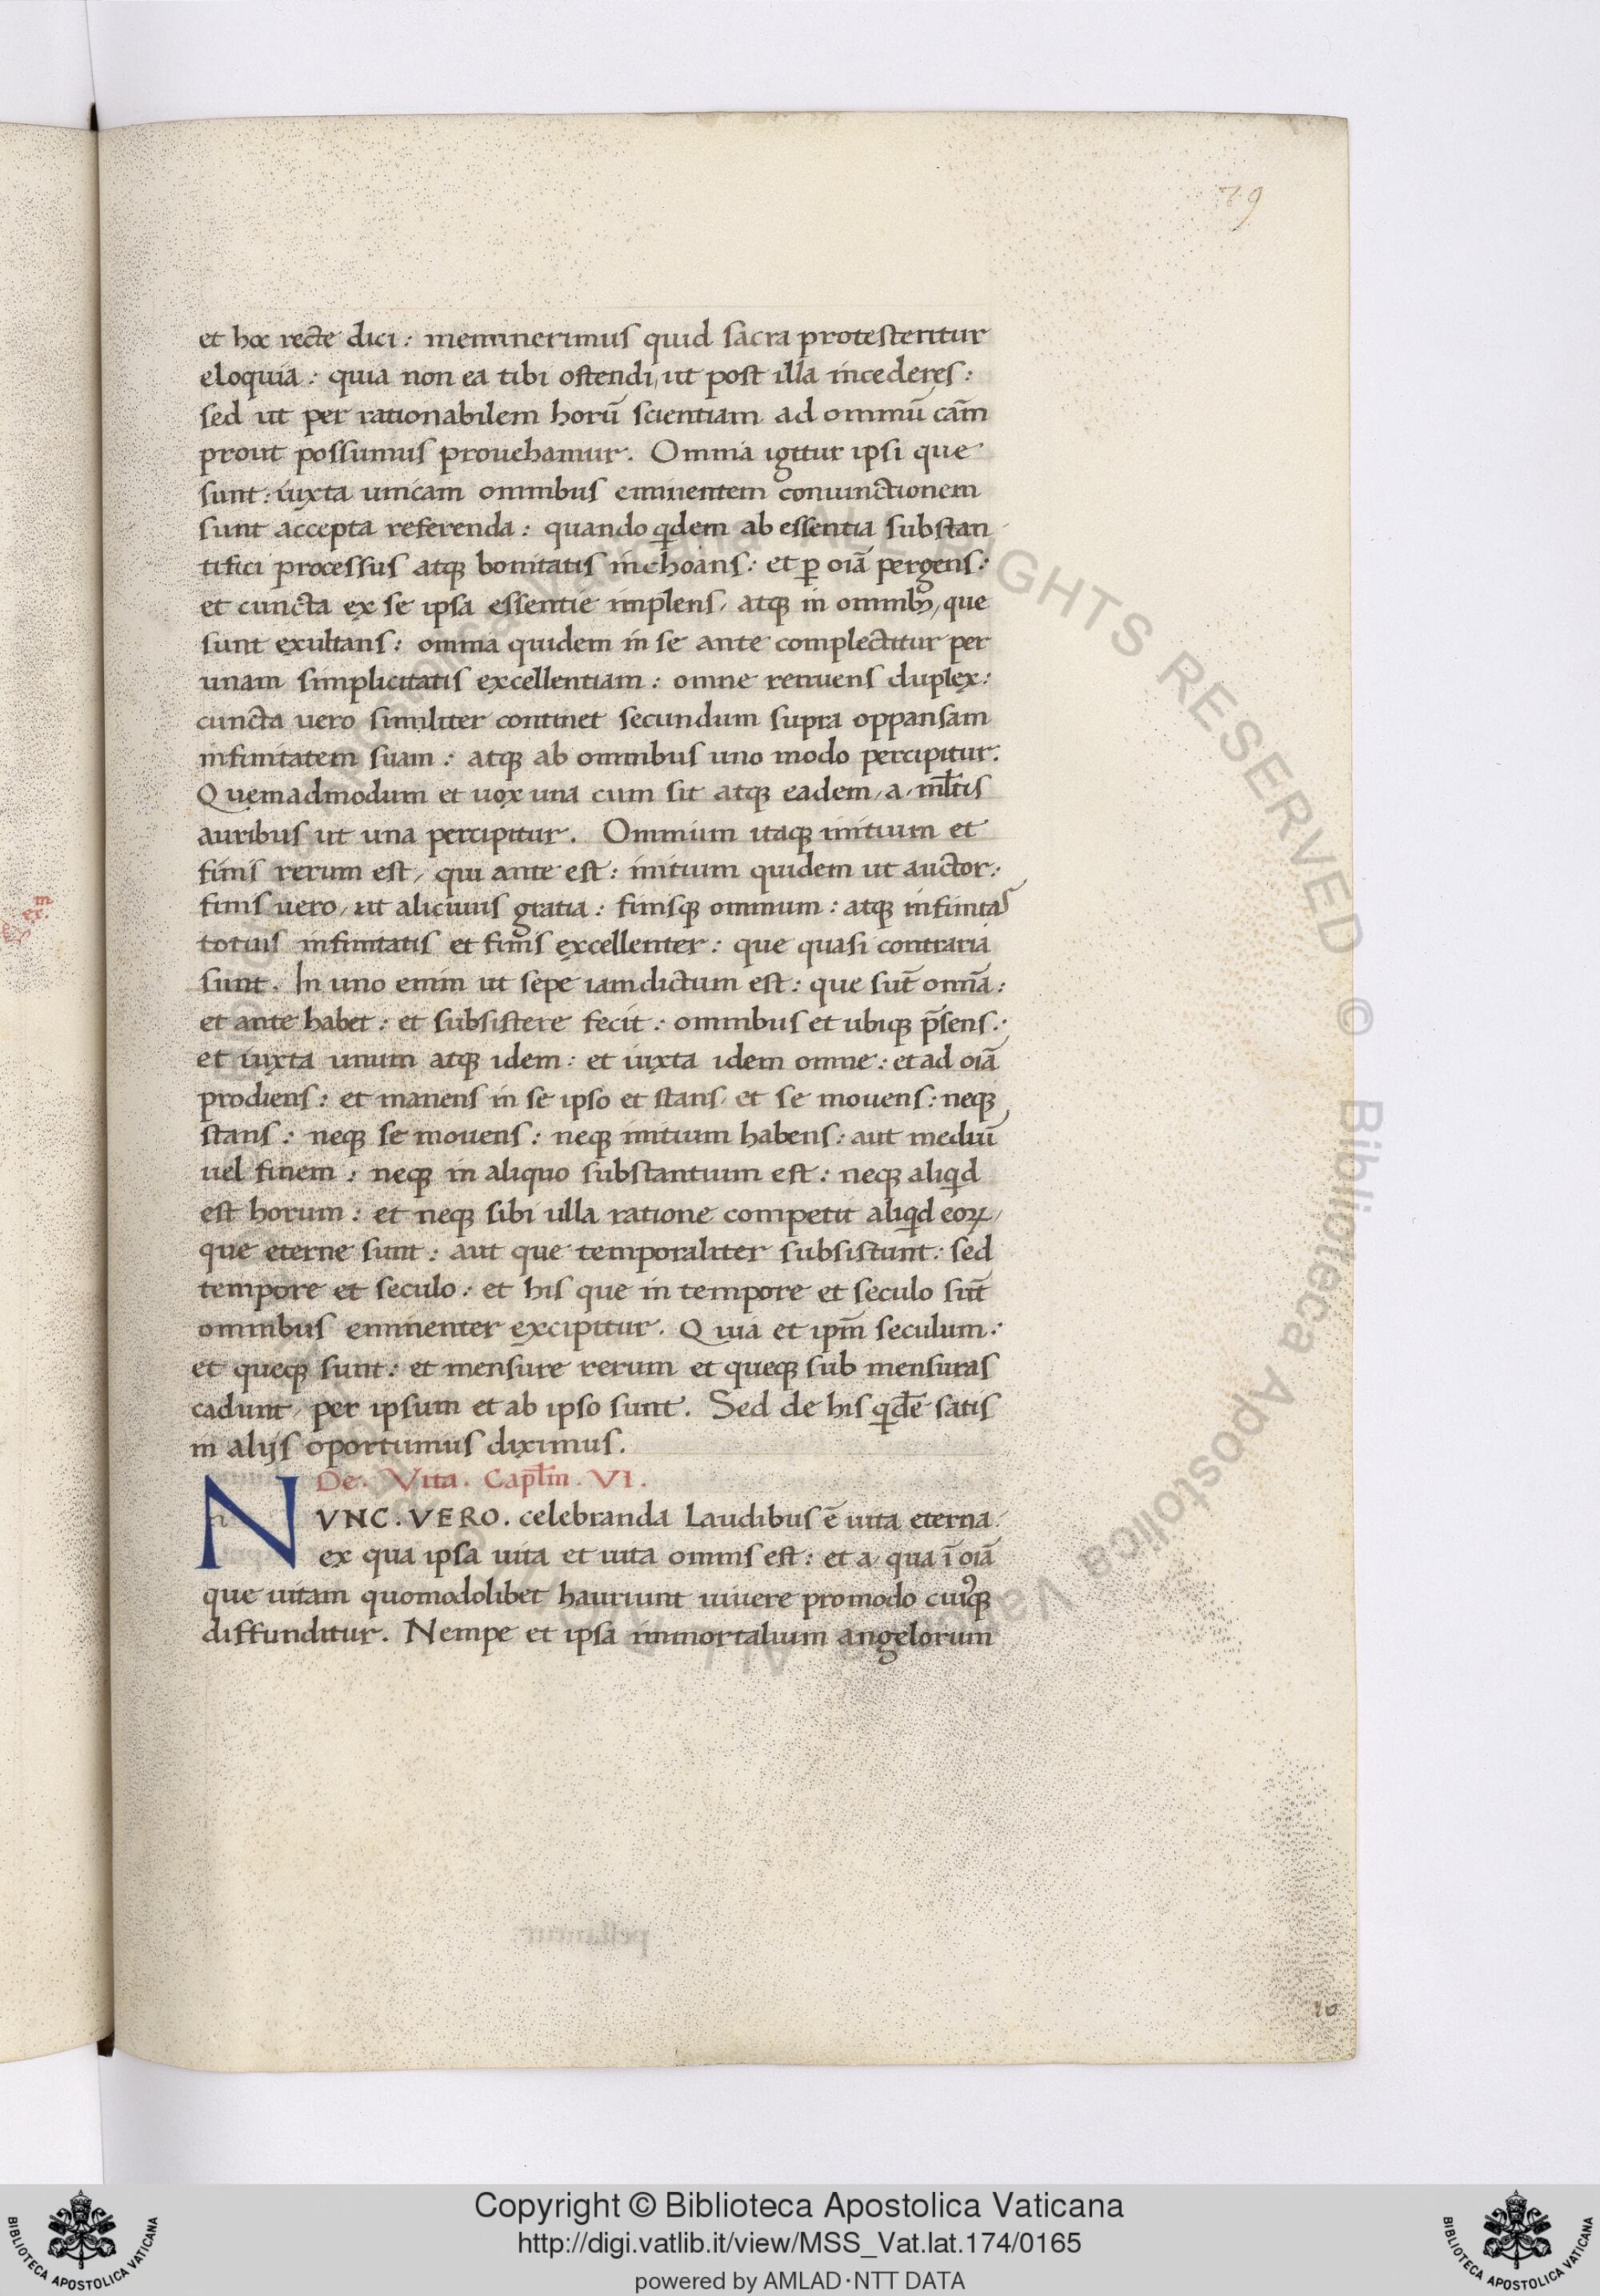 79
et hoc recte dici: meminerimus quid sacra protestentur
eloquia: quia non ea tibi ostendi, ut post illa incederes:
sed ut per rationabilem horū scientiam ad omniū cām
prout possumus provehamur. Omnia igitur ipsi que
sunt: iuxta unicam omnibus eminentem coniunctionem
sunt accepta referenda: quando qdem ab essentia substan
tifici processus atq bonitatis inchoans: et ꝑ oiā pergens:
et cuncta ex se ipsa essentie implens, atq in omnibȝ, que
sunt exultans: omnia quidem in se ante complectitur per
unam simplicitatis excellentiam: omne renuens duplex:
cuncta uero similiter continet secundum supra oppansam
infinitatem suam: atq ab omnibus uno modo percipitur.
Quemadmodum et uox una cum sit atq eadem, a, ml̄tis
auribus ut una percipitur. Omnium itaq initium et
finis rerum est, qui ante est: initium quidem ut auctor:
finis uero, ut alicuius gratia: finisq omnium: atq infinitas
totius infinitatis et finis excellenter: que quasi contraria
sunt. In uno enim ut sepe iam dictum est: que sūt omīa:
et ante habet: et subsistere fecit: omnibus et ubiq p̄sens:
et iuxta unum atq idem: et iuxta idem omne: et ad oiā
prodiens: et manens in se ipso et stans, et se mouens: neq
stans: neq se mouens: neq initium habens: aut mediū
uel finem: neq in aliquo substantium est: neq aliqd
est horum: et neq sibi ulla ratione competit aliqd eoꝝ,
que eterne sunt: aut que temporaliter subsistunt: sed
tempore et seculo: et his que in tempore et seculo sūt
omnibus eminenter excipitur. Quia et ipm̄ seculum:
et queq sunt: et mensure rerum et queq sub mensuras
cadunt, per ipsum et ab ipso sunt. Sed de his qdē satis
in alijs oportunius diximus.
De. Vita. Capl̄m. VI.
NVNC. VERO. celebranda Laudibus ē uita eterna
ex qua ipsa uita et uita omnis est: et a, qua ī oiā
que uitam quomodolibet hauriunt uiuere pro modo cuiꝰq
diffunditur. Nempe et ipsa immortalium angelorum
10
Copyright © Biblioteca Apostolica Vaticana
http://digi.vatlib.it/view/MSS_Vat.lat.174/0165
powered by AMLAD·NTT DATA
BIBLIOTECA APOSTOLICA VATICANA
BIBLIOTECA APOSTOLICA VATICANA